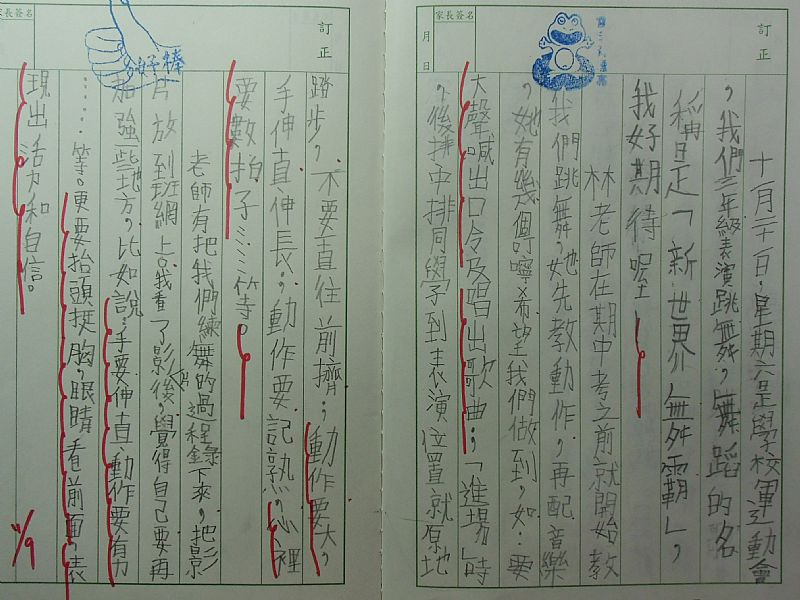 訂正
家長簽名
月 日
十一月二十日，星期六是學校運動會
，我們三年級表演跳舞，舞蹈的名
稱是「新世界舞霸」，
我好期待呢！
林老師在期中考之前就開始教
我們跳舞，她先教動作，再配音樂
，她有幾個叮嚀希望我們做到，如：要
大聲喊出口令及唱出歌曲；「進場」時
，後排中排同學到表演位置就原地
訂正
家長簽名
好棒
踏步，不要直往前擠；動作要大，
手伸直伸長；動作要記熟，心裡
要數拍子……等。
老師有把我們練舞的過程錄下來，把影
片放到班網上。我看了影片後，覺得自己要再
加強些地方，比如說：手要伸直，動作要有力
……等。更要抬頭挺胸，眼睛看前面，表
現出活力和自信。
11/9